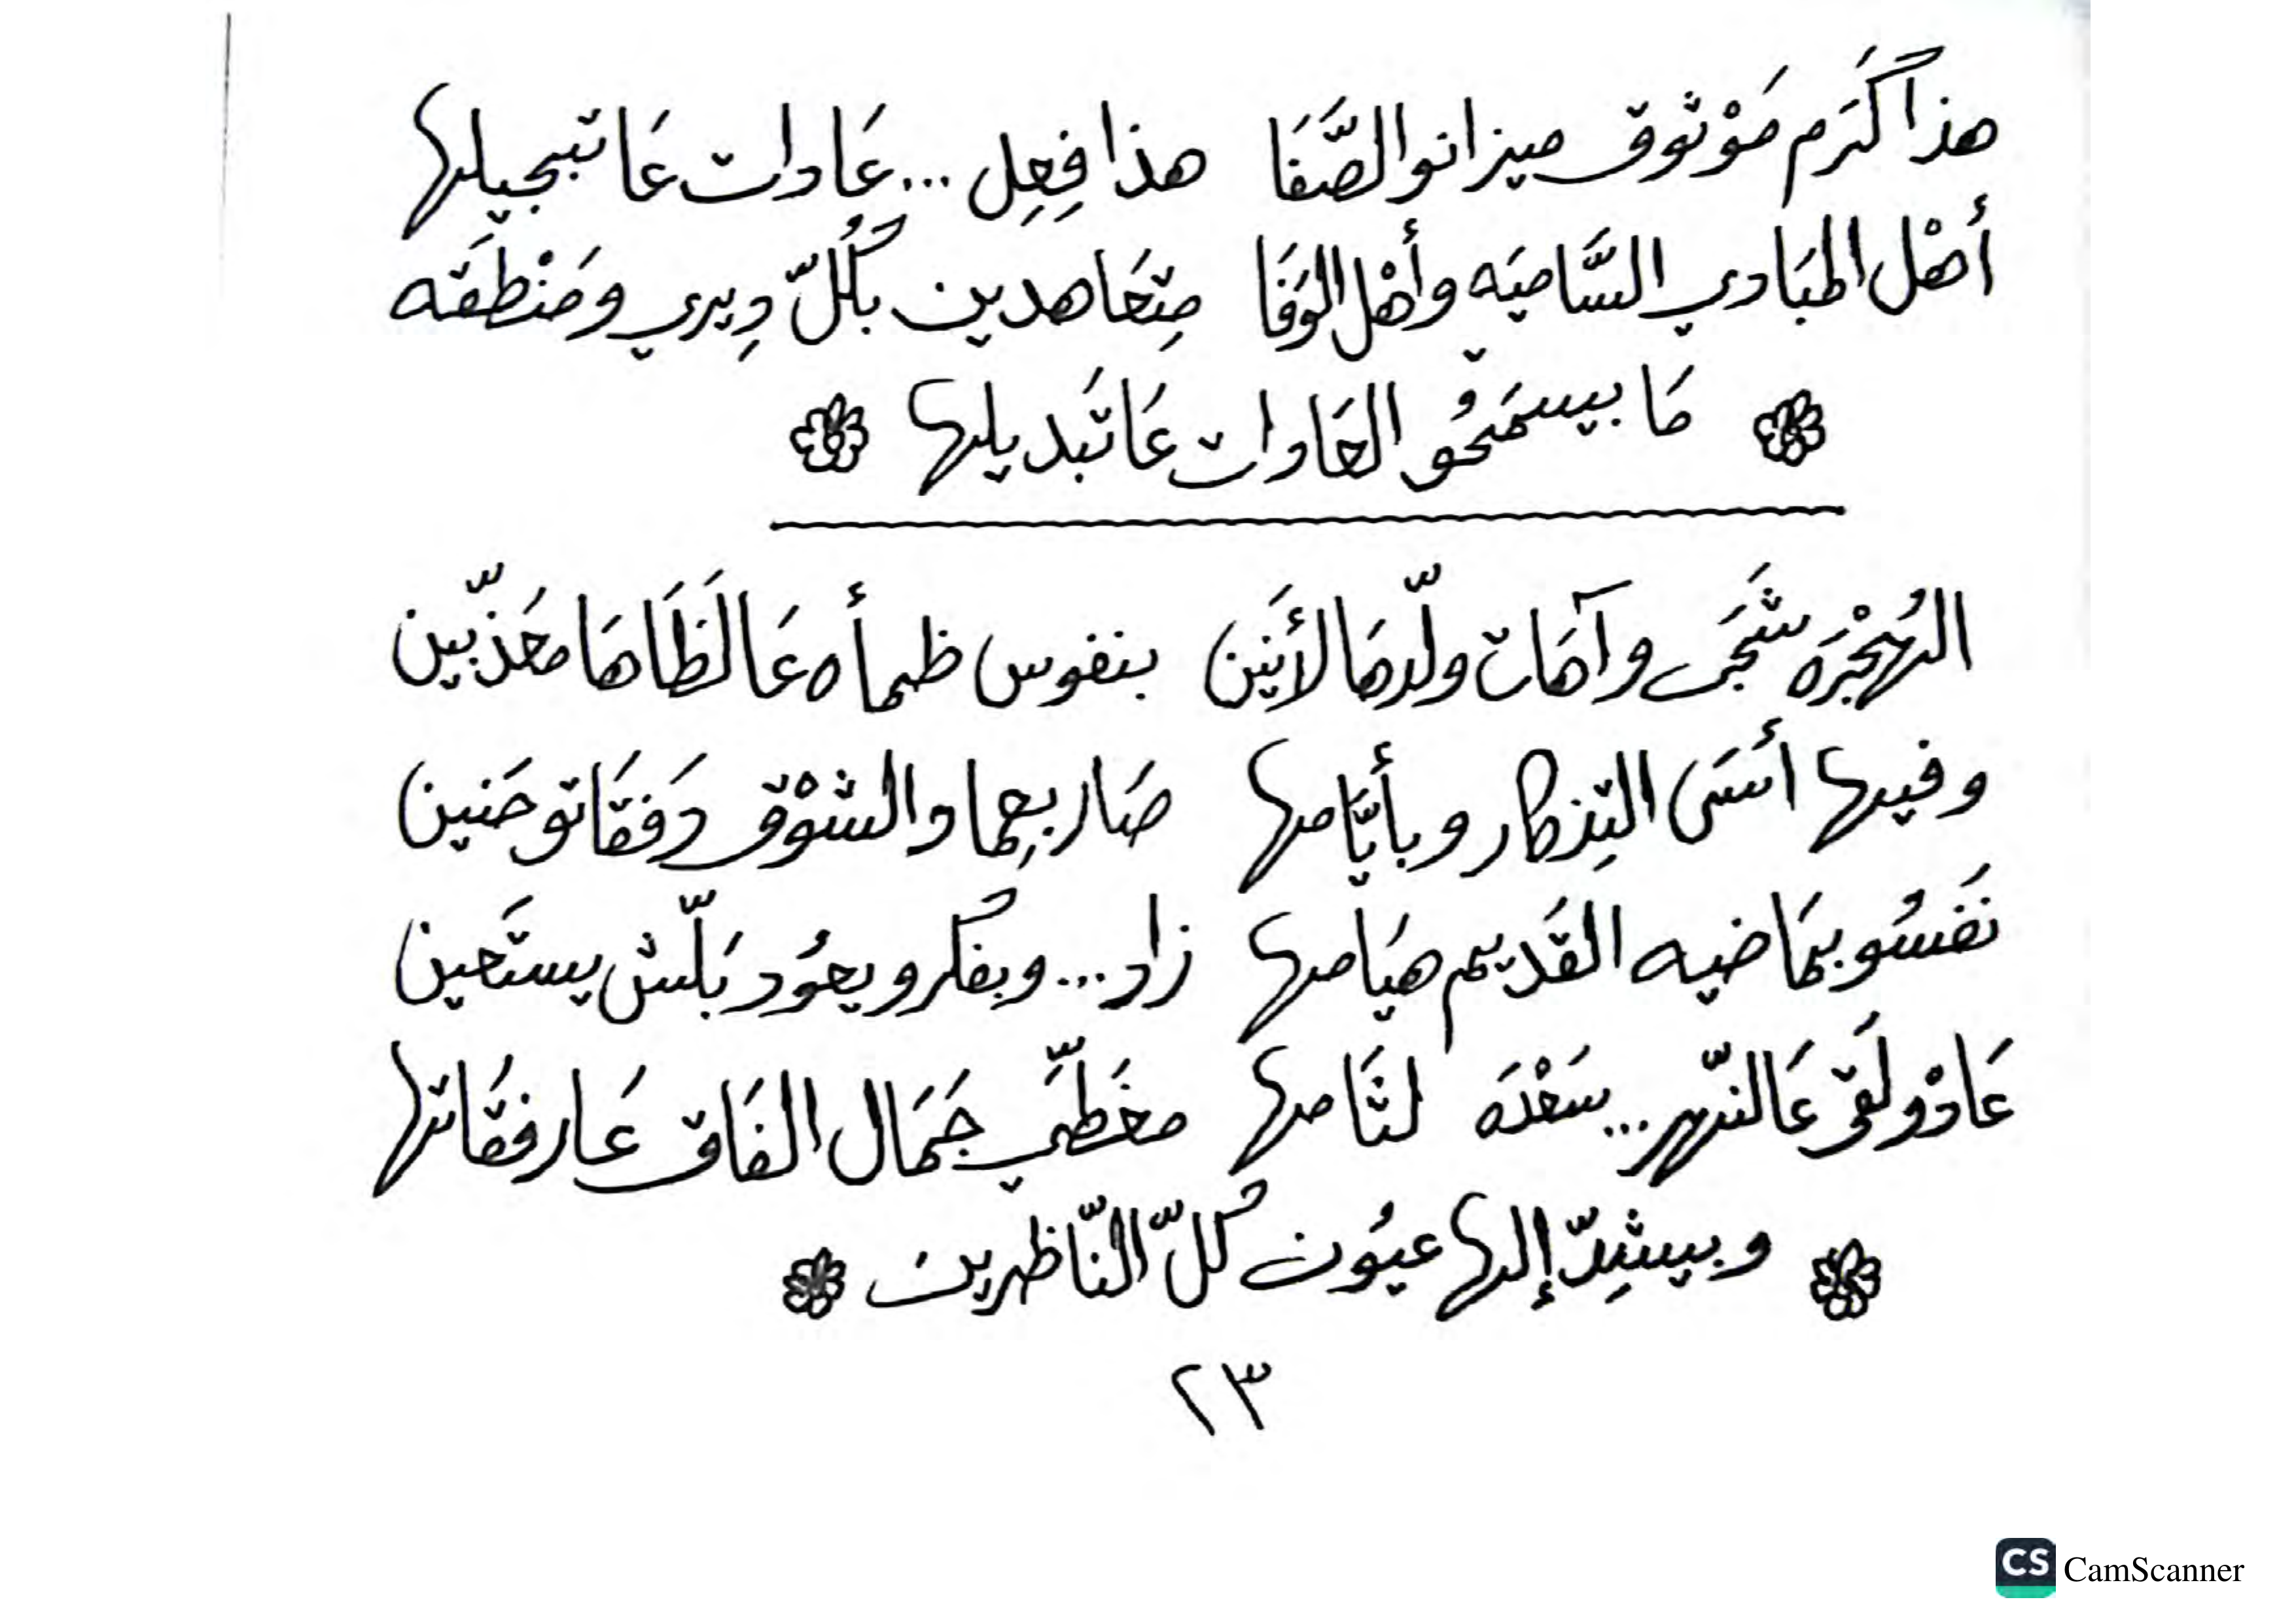 هذا كَرَم مَوْثوق ميزانو الصَّفَا هذا فِعِل ... عَادات عَا تبجيلها
أهْل المبَادي السَّاميَه وأهْل الوَفَا مِتعَاهدين بكُلّ دِيري ومَنْطقَه
مَا بيسمَحُو العَادات عَا تَبديلها
الهُجْرَه شَجَى وآهَات ولّدهَا الأَنين بنفوس ظمأه عَا لَظَاهَا معَذّبين
وفيها أسَى التِذكار وبأيَّامها صَار بعِماد الشوْق دَفقَاتو حَنين
نَفسُو بمَاضيه القَديم هيَامها زاد ... وبفكرو يعوُد بَلّش يستَعين
عَادْ ولَقى عَالنّهر ... سَعْدَه لثَامها مغَطّي جَمَال الفَاق عَا رفقَاتها
وبيشِدّ إلها عيُون كُلّ النّاظرين
٢٣
CS CamScanner